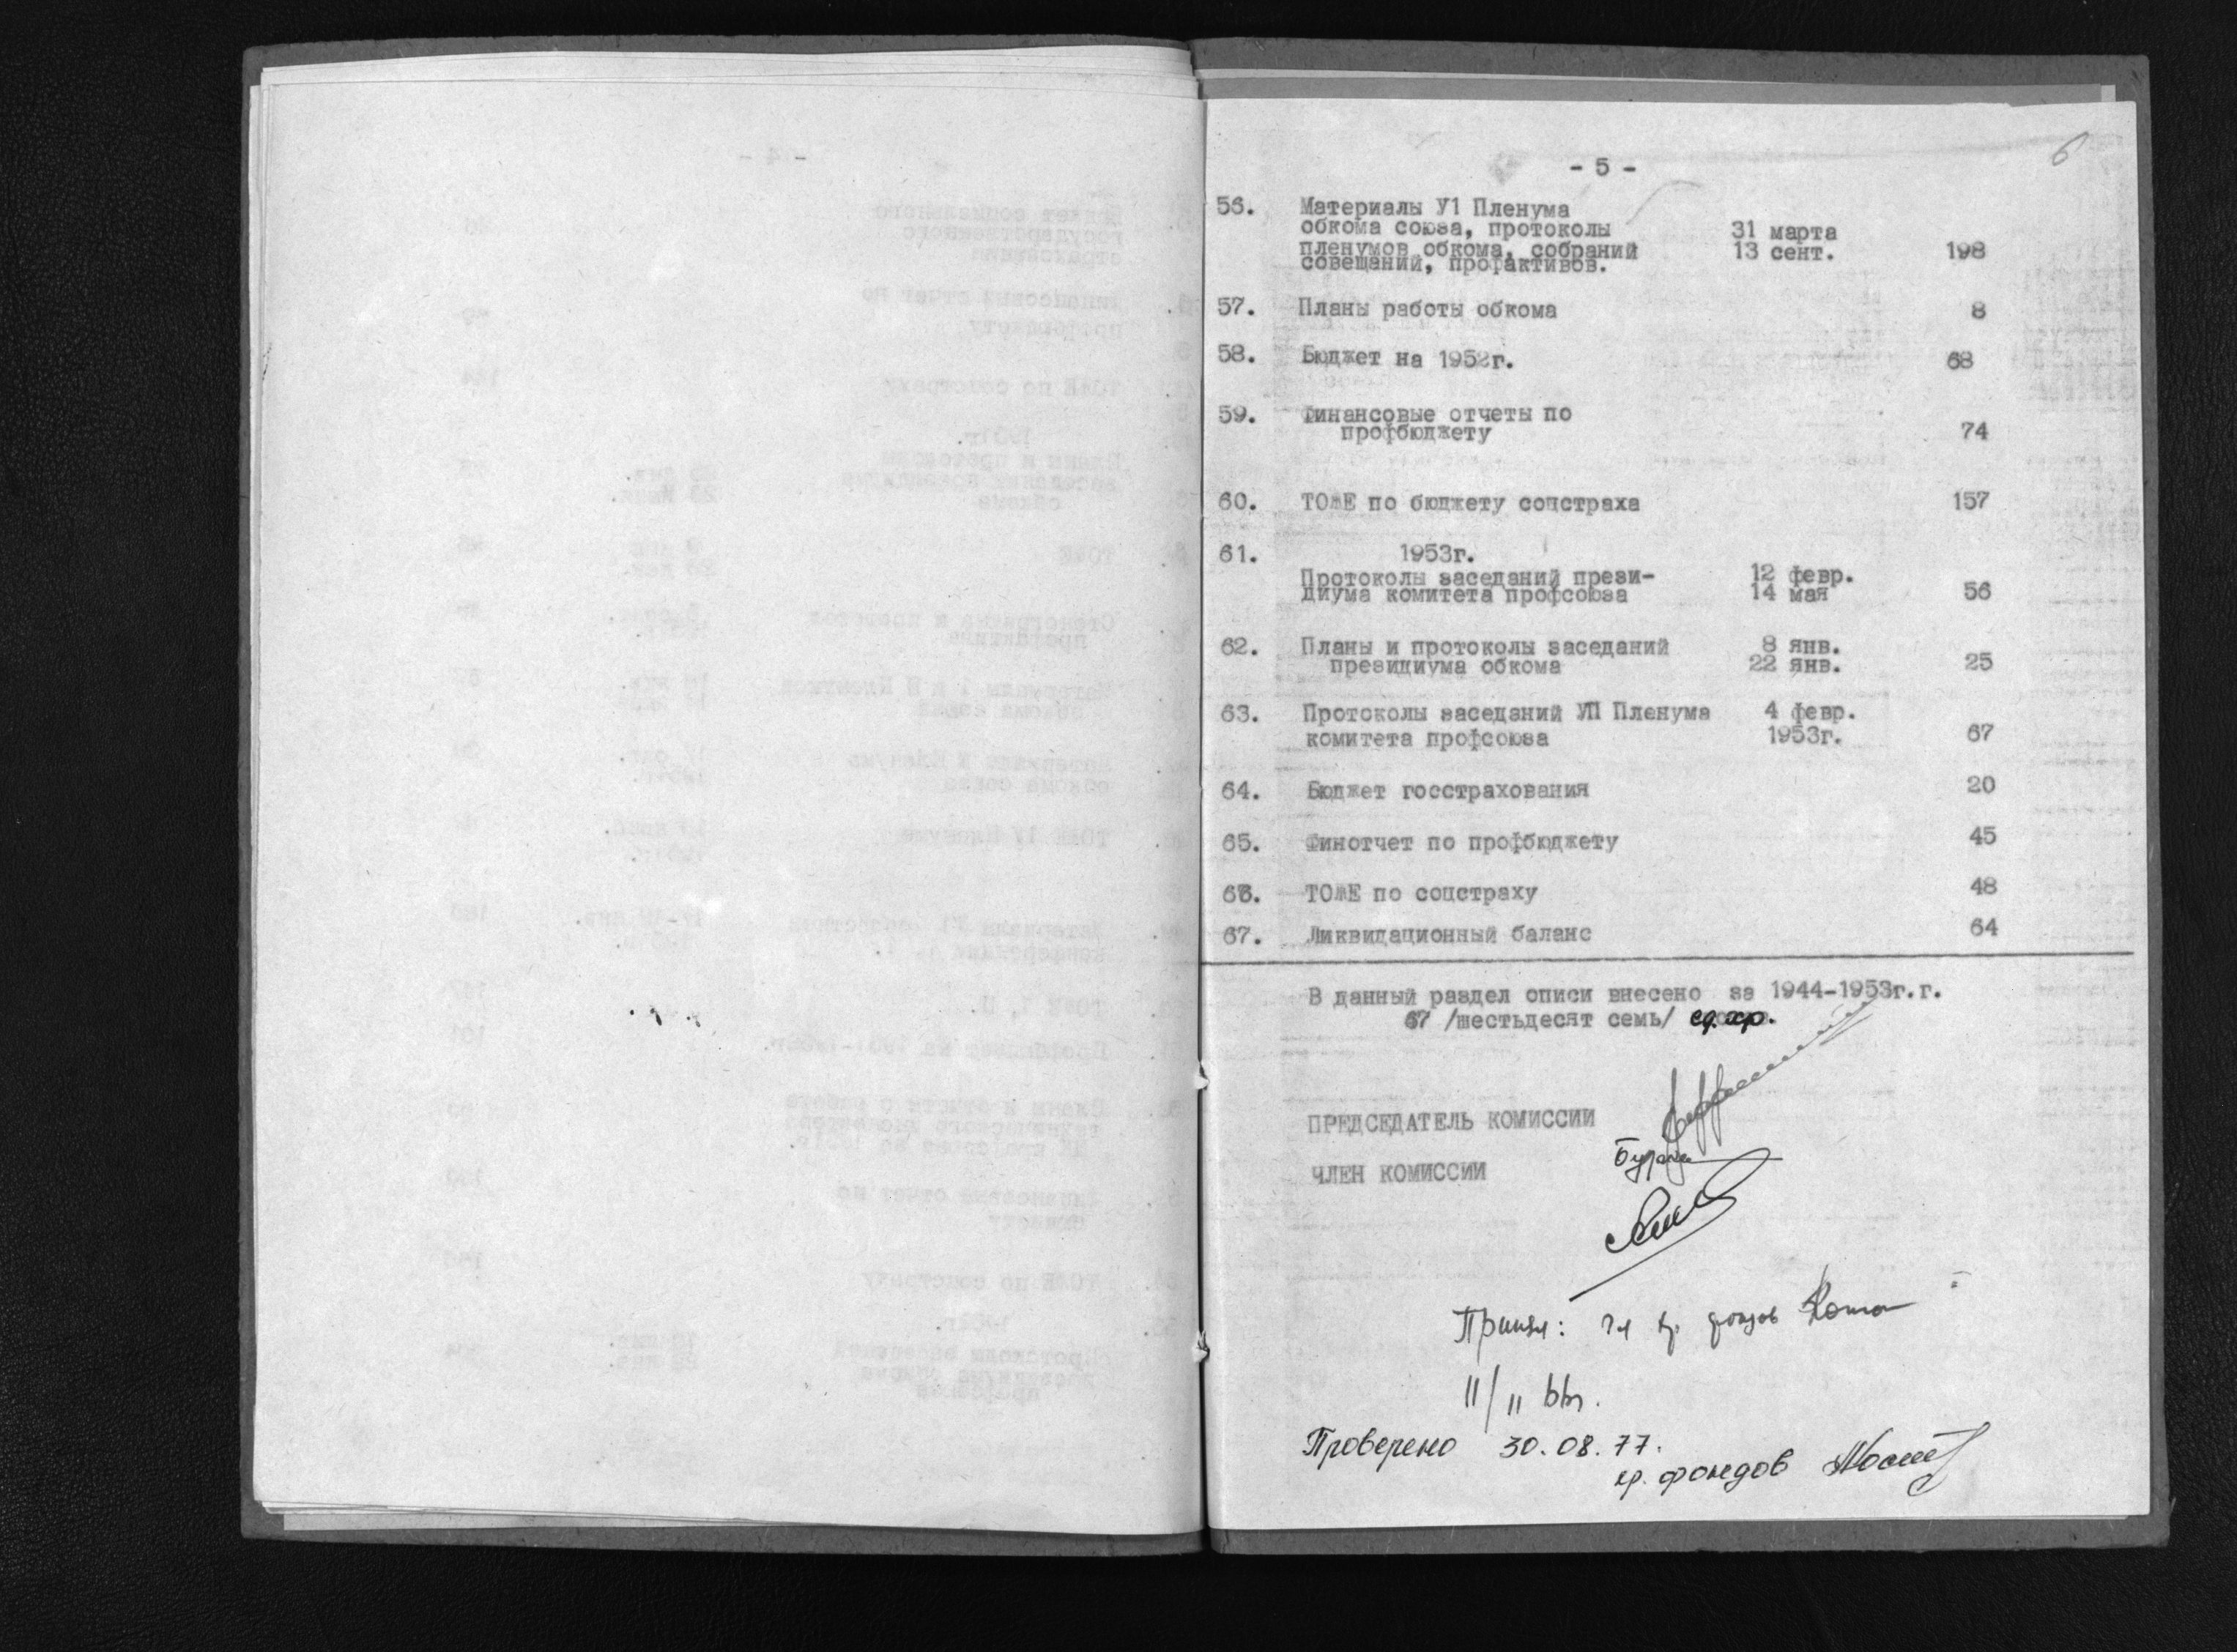 6
- 5 -
56. Материалы У1 Пленума
обкома союза, протоколы 31 марта
пленумов обкома, собраний 13 сент. 198
совещаний, профактивов.
57. Планы работы обкома 8
58. Бюджет на 1952г. 68
59. Финансовые отчеты по
профбюджету 74
60. ТОЖЕ по бюджету соцстраха 157
61. 1953г.
Протоколы заседаний прези- 12 февр.
диума комитета профсоюза 14 мая 56
62. Планы и протоколы заседаний 8 янв.
президиума обкома 22 янв. 25
63. Протоколы заседаний УП Пленума 4 февр.
комитета профсоюза 1953г. 67
64. Бюджет госстрахования 20
65. Финотчет по профбюджету 45
66. ТОЖЕ по соцстраху 48
67. Ликвидационный баланс 64
В данный раздел описи внесено за 1944-1953г.г.
67 /шестьдесят семь/ ед.хр.
ПРЕДСЕДАТЕЛЬ КОМИССИИ
ЧЛЕН КОМИССИИ
Принял: фондов
11/11
Проверено 30.08.77.
хр. фондов